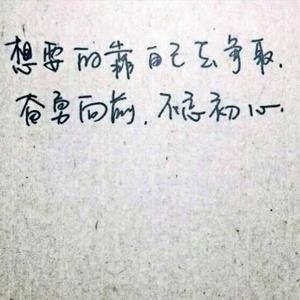 想要的靠自己去争取.
奋勇向前,不忘初心.